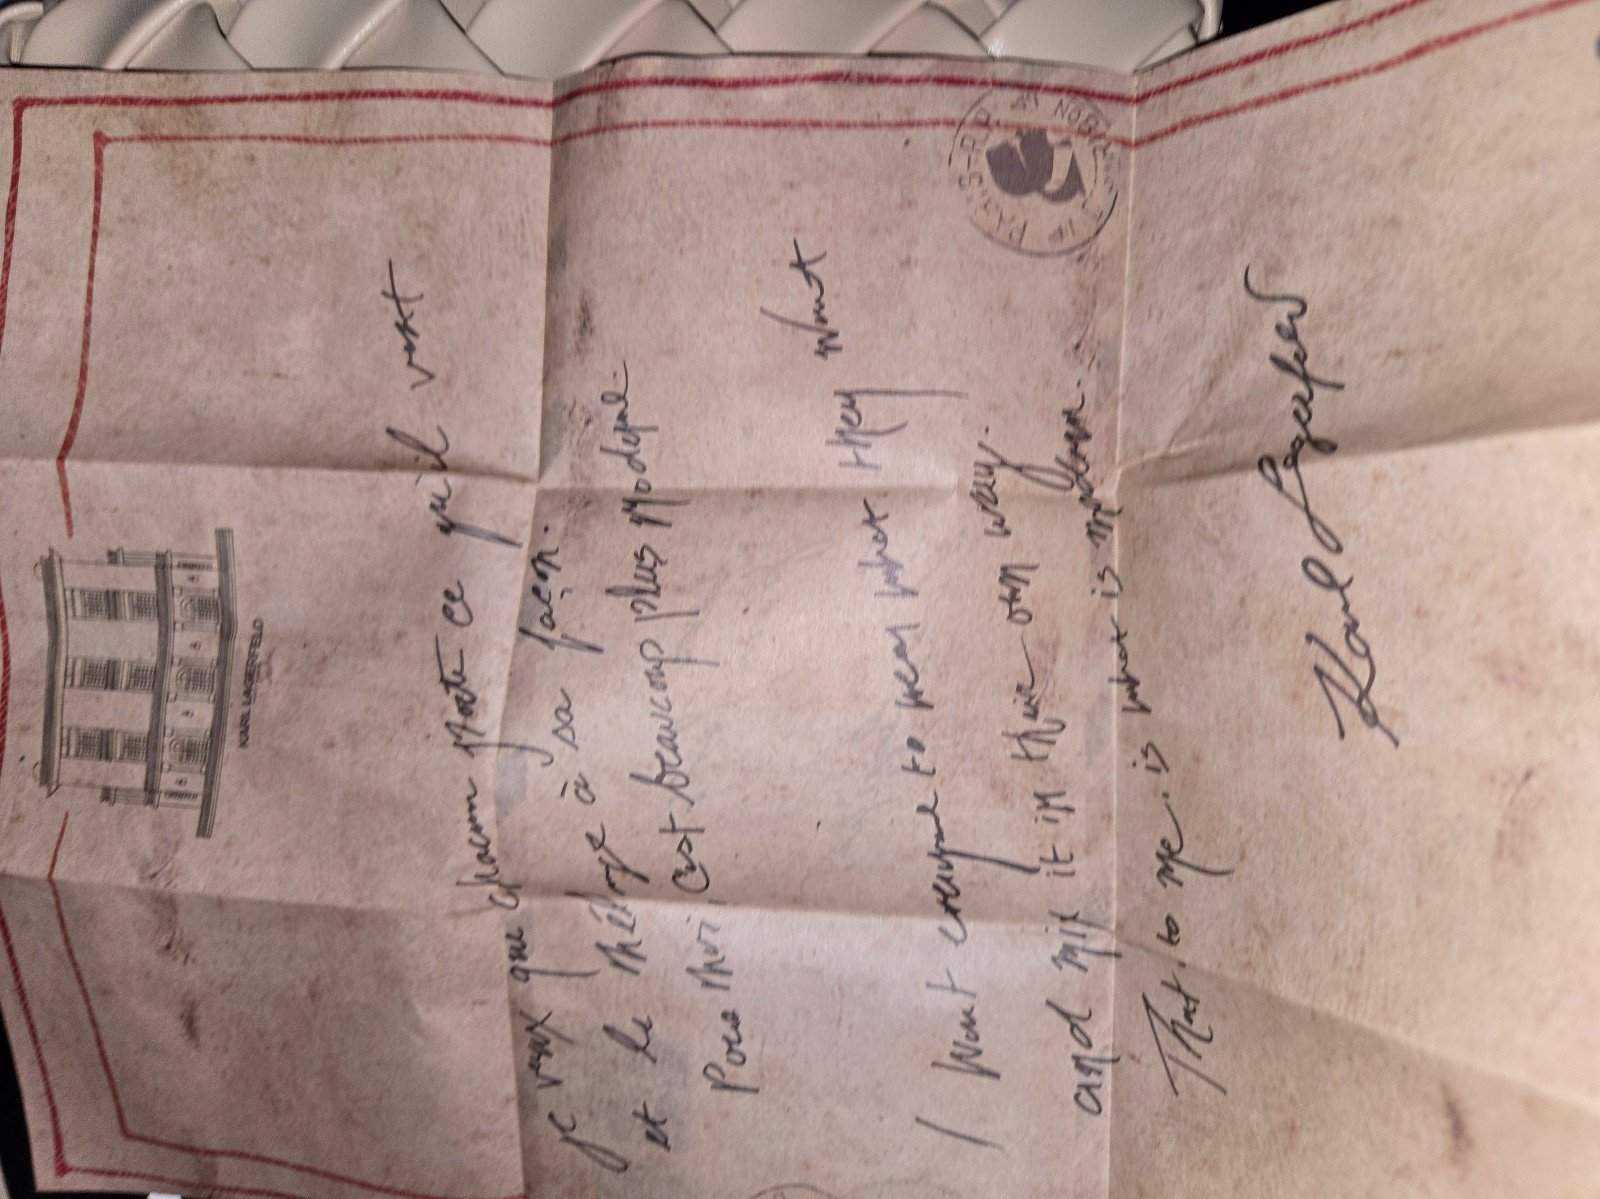 KARL LAGERFELD
Je veux que chacun porte ce qu'il veut
et le mélange à sa façon.
Pour moi, c'est beaucoup plus moderne.
I want everyone to wear what they want
and mix it in their own way.
That, to me, is what is modern.
Karl Lagerfeld
PARIS-R.P.